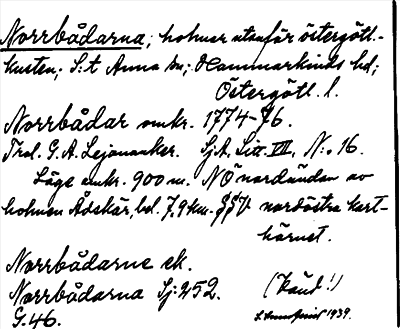 Norrbådarna, holmar utanför östergötl.-
kusten; S:t Anna sn; Hammarkinds hd;
Östergötl. l.
Norrbådar omkr. 1774-76.
Trol. G.A. Lejonanker. Sj.A. Litt. VII, N:o 16.
Läge omkr. 900 m. NÖ nordändan av
holmen Ådskär, bel. 7,9 km. SSV nordöstra kart-
hörnet.
Norrbådarne ek.
Norrbådarna Sj: 252. (känd!)
G. 46. 1939.